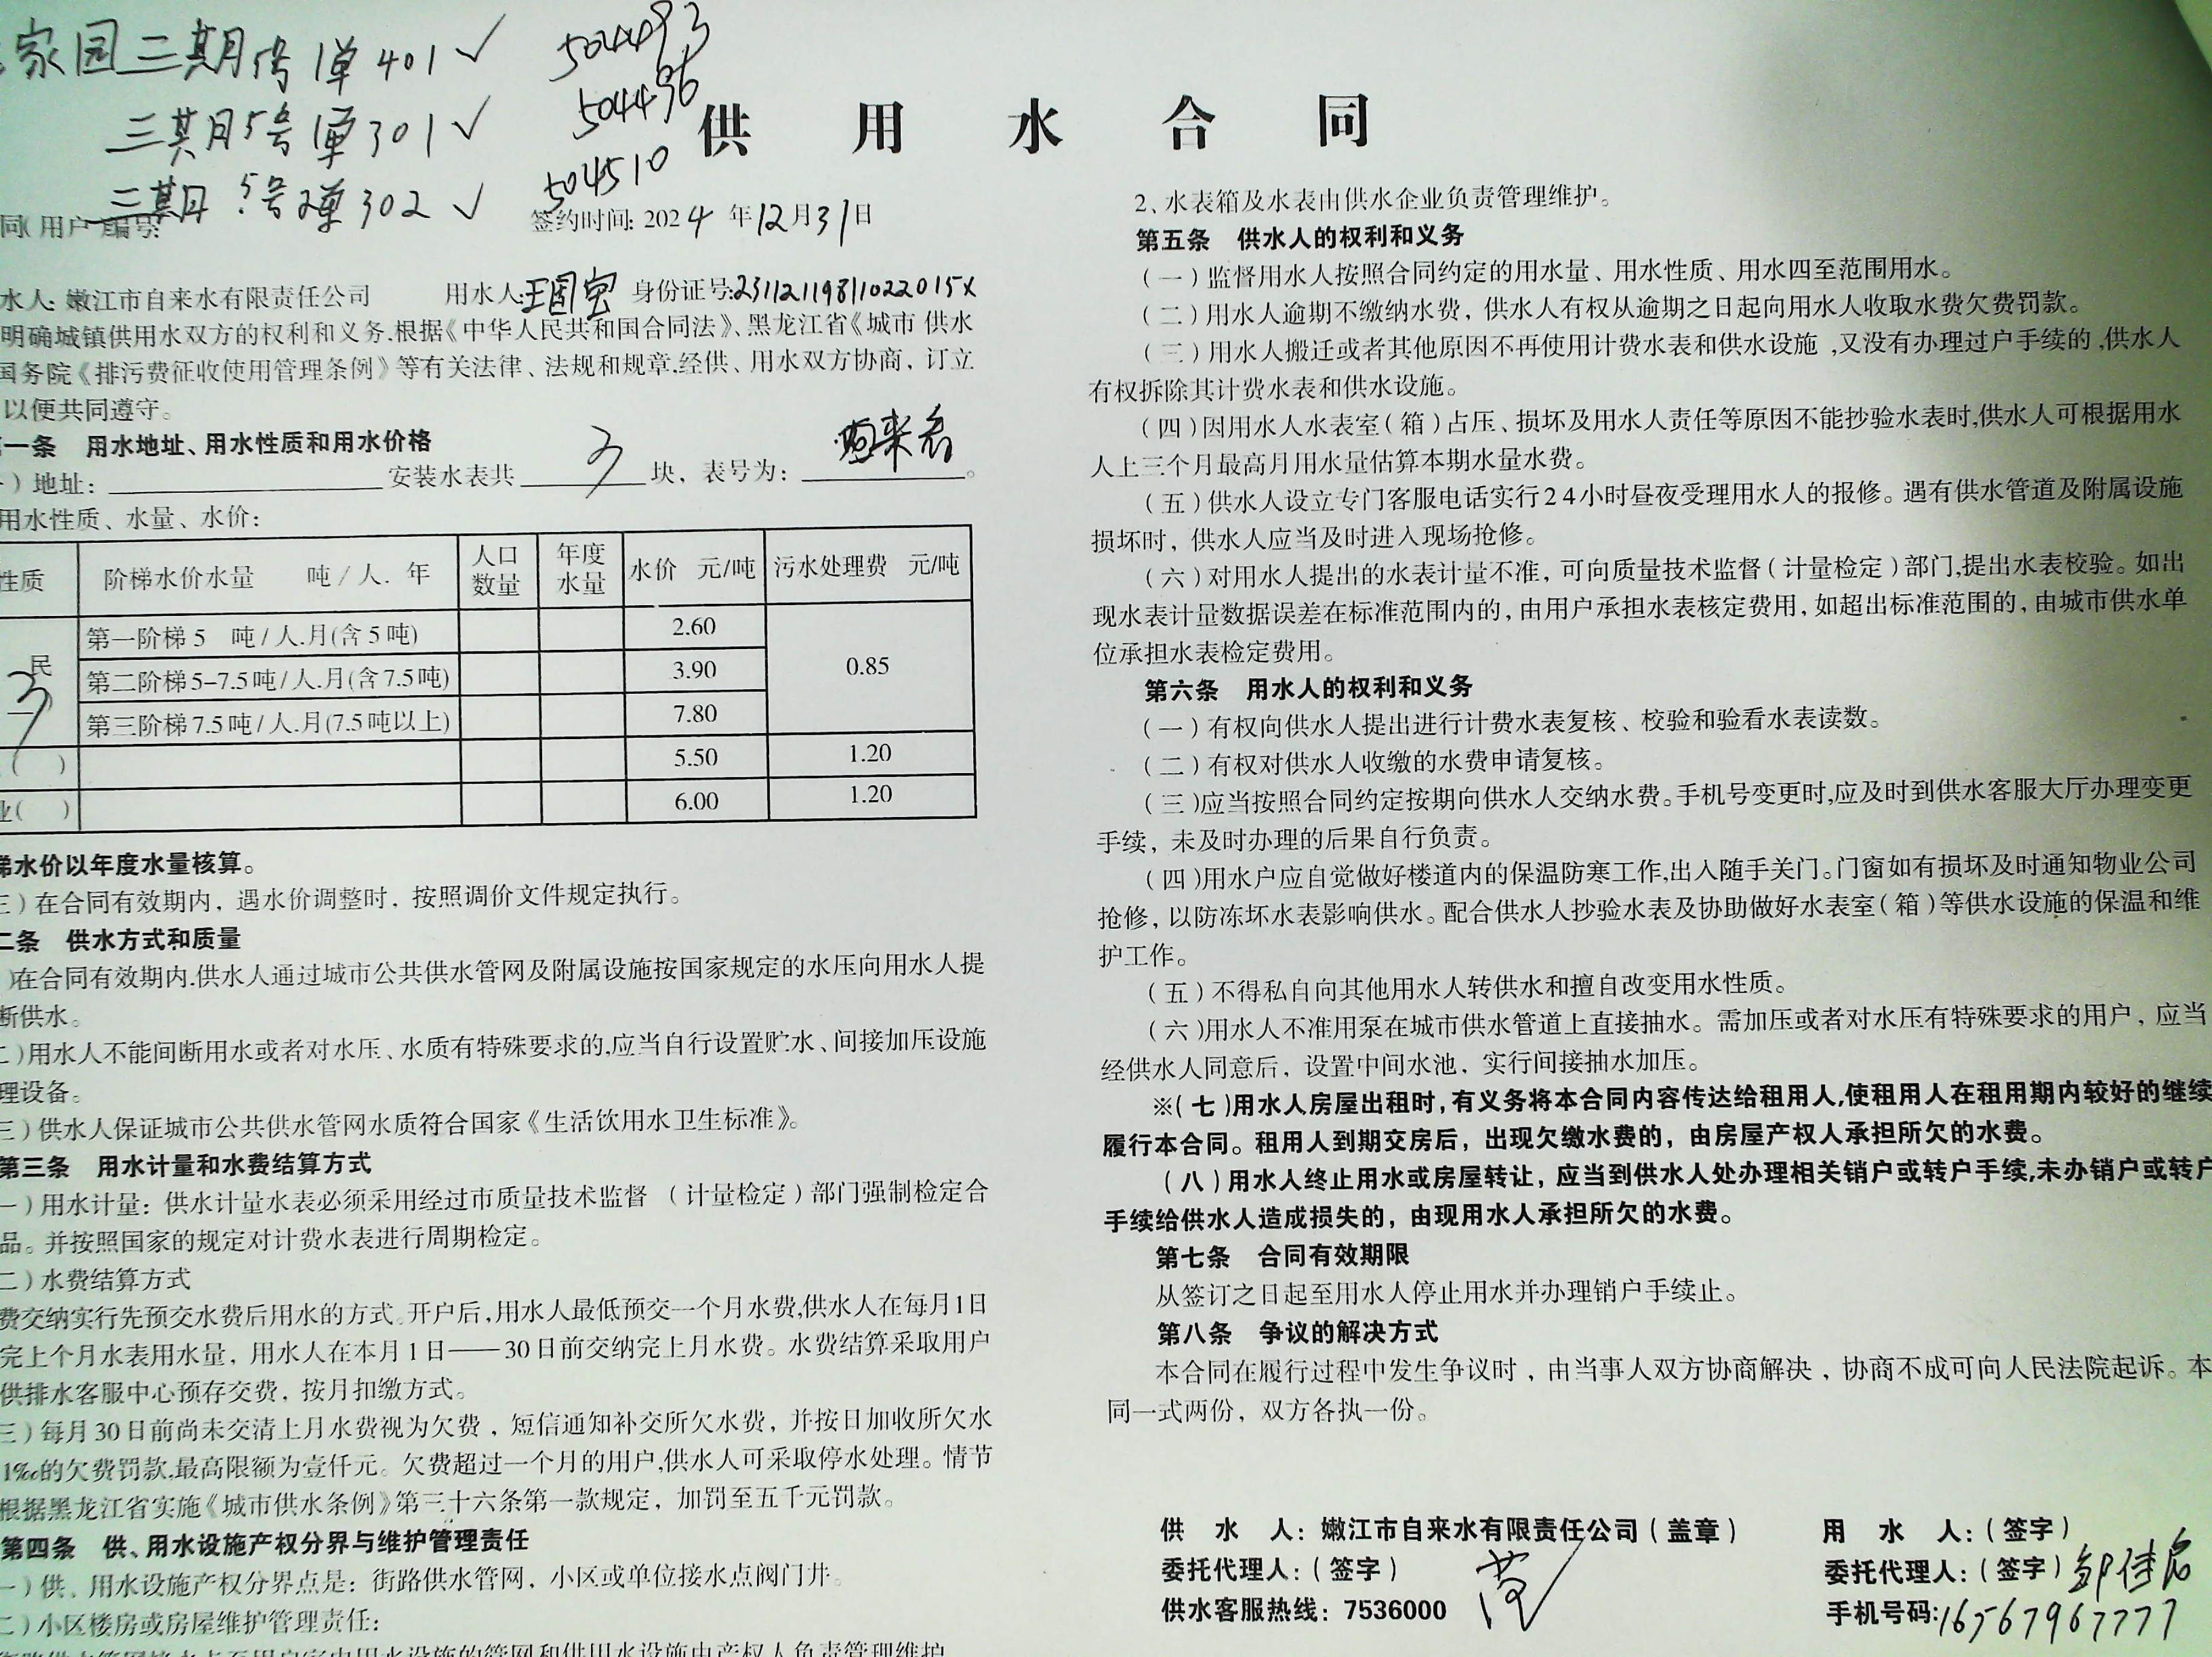 家园三期5号1单401✓ 504493
三期5号1单301✓ 504496
三期5号2单302✓ 504510
供 用 水 合 同
同(用户)编号: 签约时间: 2024年12月31日
水人: 嫩江市自来水有限责任公司 用水人:王国宝 身份证号:23112119811022015X
明确城镇供用水双方的权利和义务,根据《中华人民共和国合同法》、黑龙江省《城市 供水
国务院《排污费征收使用管理条例》等有关法律、法规和规章,经供、用水双方协商，订立
以便共同遵守。
一条 用水地址、用水性质和用水价格
)地址： 安装水表共 3 块，表号为：
用水性质、水量、水价：
性质 阶梯水价水量 吨/人.年 人口数量 年度水量 水价 元/吨 污水处理费 元/吨
民 3 第一阶梯 5 吨/人.月(含5吨) 2.60 0.85
第二阶梯5-7.5吨/人.月(含7.5吨) 3.90
第三阶梯7.5吨/人.月(7.5吨以上) 7.80
( ) 5.50 1.20
业( ) 6.00 1.20
梯水价以年度水量核算。
三)在合同有效期内，遇水价调整时，按照调价文件规定执行。
二条 供水方式和质量
)在合同有效期内,供水人通过城市公共供水管网及附属设施按国家规定的水压向用水人提
断供水。
二)用水人不能间断用水或者对水压、水质有特殊要求的,应当自行设置贮水、间接加压设施
理设备。
三)供水人保证城市公共供水管网水质符合国家《生活饮用水卫生标准》。
第三条 用水计量和水费结算方式
一)用水计量：供水计量水表必须采用经过市质量技术监督 (计量检定)部门强制检定合
品。并按照国家的规定对计费水表进行周期检定。
二)水费结算方式
费交纳实行先预交水费后用水的方式。开户后,用水人最低预交一个月水费,供水人在每月1日
完上个月水表用水量，用水人在本月1日——30日前交纳完上月水费。水费结算采取用户
供排水客服中心预存交费，按月扣缴方式。
三)每月30日前尚未交清上月水费视为欠费，短信通知补交所欠水费，并按日加收所欠水
1‰的欠费罚款,最高限额为壹仟元。欠费超过一个月的用户,供水人可采取停水处理。情节
根据黑龙江省实施《城市供水条例》第三十六条第一款规定，加罚至五千元罚款。
第四条 供、用水设施产权分界与维护管理责任
一)供、用水设施产权分界点是：街路供水管网，小区或单位接水点阀门井。
二)小区楼房或房屋维护管理责任：
2、水表箱及水表由供水企业负责管理维护。
第五条 供水人的权利和义务
(一)监督用水人按照合同约定的用水量、用水性质、用水四至范围用水。
(二)用水人逾期不缴纳水费，供水人有权从逾期之日起向用水人收取水费欠费罚款。
(三)用水人搬迁或者其他原因不再使用计费水表和供水设施,又没有办理过户手续的,供水人
有权拆除其计费水表和供水设施。
(四)因用水人水表室(箱)占压、损坏及用水人责任等原因不能抄验水表时,供水人可根据用水
人上三个月最高月用水量估算本期水量水费。
(五)供水人设立专门客服电话实行24小时昼夜受理用水人的报修。遇有供水管道及附属设施
损坏时，供水人应当及时进入现场抢修。
(六)对用水人提出的水表计量不准，可向质量技术监督(计量检定)部门,提出水表校验。如出
现水表计量数据误差在标准范围内的，由用户承担水表核定费用，如超出标准范围的，由城市供水单
位承担水表检定费用。
第六条 用水人的权利和义务
(一)有权向供水人提出进行计费水表复核、校验和验看水表读数。
(二)有权对供水人收缴的水费申请复核。
(三)应当按照合同约定按期向供水人交纳水费。手机号变更时,应及时到供水客服大厅办理变更
手续，未及时办理的后果自行负责。
(四)用水户应自觉做好楼道内的保温防寒工作,出入随手关门。门窗如有损坏及时通知物业公司
抢修，以防冻坏水表影响供水。配合供水人抄验水表及协助做好水表室(箱)等供水设施的保温和维
护工作。
(五)不得私自向其他用水人转供水和擅自改变用水性质。
(六)用水人不准用泵在城市供水管道上直接抽水。需加压或者对水压有特殊要求的用户，应当
经供水人同意后，设置中间水池，实行间接抽水加压。
※(七)用水人房屋出租时,有义务将本合同内容传达给租用人,使租用人在租用期内较好的继续
履行本合同。租用人到期交房后，出现欠缴水费的，由房屋产权人承担所欠的水费。
(八)用水人终止用水或房屋转让，应当到供水人处办理相关销户或转户手续,未办销户或转户
手续给供水人造成损失的，由现用水人承担所欠的水费。
第七条 合同有效期限
从签订之日起至用水人停止用水并办理销户手续止。
第八条 争议的解决方式
本合同在履行过程中发生争议时，由当事人双方协商解决，协商不成可向人民法院起诉。本
同一式两份，双方各执一份。
供 水 人：嫩江市自来水有限责任公司(盖章) 用 水 人：(签字)
委托代理人：(签字) 委托代理人：(签字)
供水客服热线：7536000 手机号码:16767967777